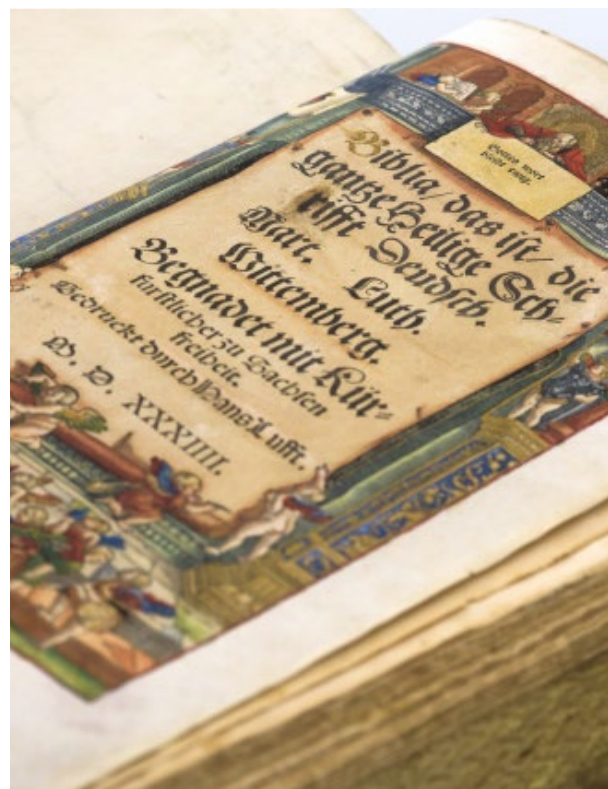 Gottes wort
bleibt ewig.
Biblia / das ist / die
gantze Heilige Sch-
rifft Deudsch.
Mart. Luth.
Wittemberg.
Begnadet mit Kür-
fürstlicher zu Sachsen
freiheit.
Gedruckt durch Hans Lufft.
M. D. XXXIIII.